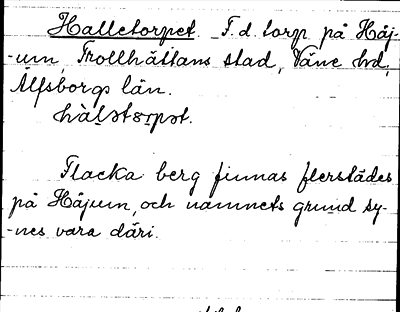 Halletorpet. F. d. torp på Håj-
-um Trollhättans stad, Väne hd,
Älfsborgs län.
hàlstɷrpst.
Flacka berg finnas flerstädes
på Håjum, och namnets grund sy-
-nes vara däri.